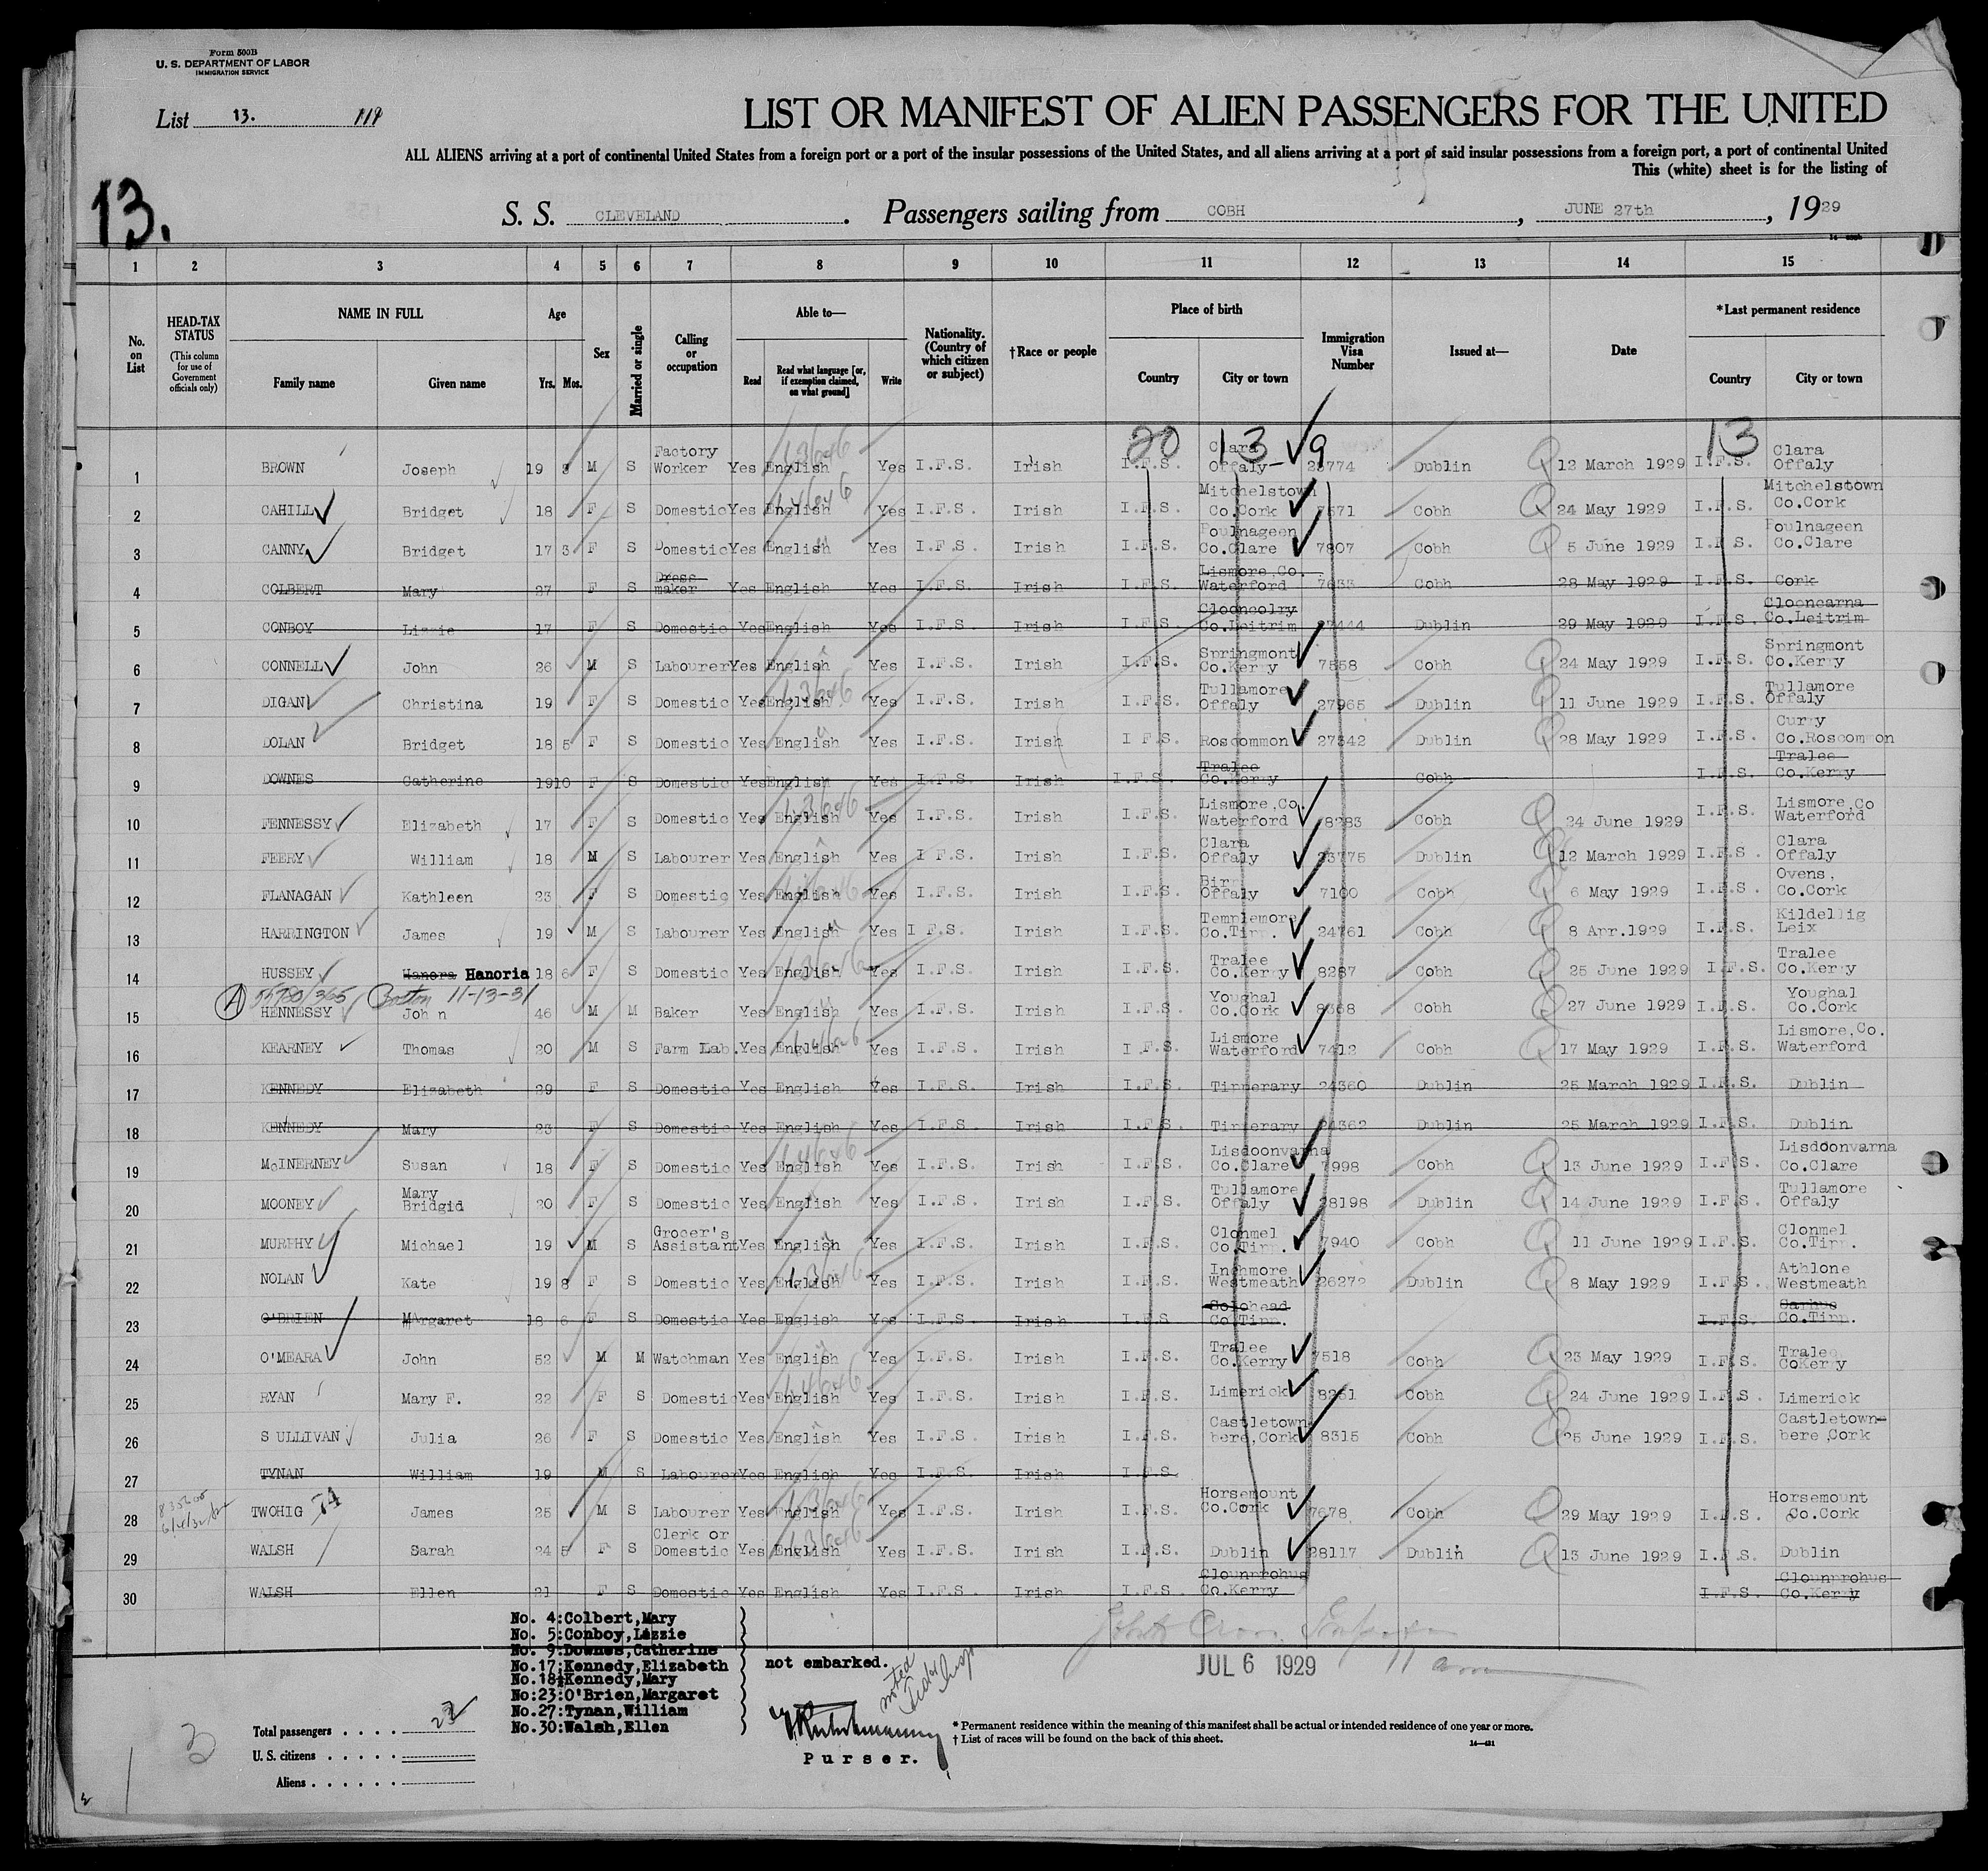 Form 500B
U. S. DEPARTMENT OF LABOR
IMMIGRATION SERVICE
List 13. 119
LIST OR MANIFEST OF ALIEN PASSENGERS FOR THE UNITED
ALL ALIENS arriving at a port of continental United States from a foreign port or a port of the insular possessions of the United States, and all aliens arriving at a port of said insular possessions from a foreign port, a port of continental United
This (white) sheet is for the listing of
13.
S. S. CLEVELAND . Passengers sailing from COBH , JUNE 27th , 1929
1 2 3 4 5 6 7 8 9 10 11 12 13 14 15
No. on List
HEAD-TAX STATUS (This column for use of Government officials only)
NAME IN FULL Family name Given name
Age Yrs. Mos.
Sex
Married or single
Calling or occupation
Able to— Read Read what language [or, if exemption claimed, on what ground] Write
Nationality. (Country of which citizen or subject)
†Race or people
Place of birth Country City or town
Immigration Visa Number
Issued at—
Date
*Last permanent residence Country City or town
20 13 9 13
1 BROWN Joseph 19 3 M S Factory Worker Yes English Yes I.F.S. Irish I.F.S. Clara Offaly 23774 Dublin 12 March 1929 I.F.S. Clara Offaly
2 CAHILL Bridget 18 F S Domestic Yes English Yes I.F.S. Irish I.F.S. Mitchelstown Co.Cork 7571 Cobh 24 May 1929 I.F.S. Mitchelstown Co.Cork
3 CANNY Bridget 17 3 F S Domestic Yes English Yes I.F.S. Irish I.F.S. Poulnageen Co.Clare 7807 Cobh 5 June 1929 I.F.S. Poulnageen Co.Clare
4 COLBERT Mary 27 F S Dress maker Yes English Yes I.F.S. Irish I.F.S. Lismore,Co. Waterford 7633 Cobh 28 May 1929 I.F.S. Cork
5 CONBOY Lizzie 17 F S Domestic Yes English Yes I.F.S. Irish I.F.S. Clooncolry Co.Leitrim 27444 Dublin 29 May 1929 I.F.S. Cloonearna Co.Leitrim
6 CONNELL John 26 M S Labourer Yes English Yes I.F.S. Irish I.F.S. Springmont Co.Kerry 7558 Cobh 24 May 1929 I.F.S. Springmont Co.Kerry
7 DIGAN Christina 19 F S Domestic Yes English Yes I.F.S. Irish I.F.S. Tullamore Offaly 27965 Dublin 11 June 1929 I.F.S. Tullamore Offaly
8 DOLAN Bridget 18 5 F S Domestic Yes English Yes I.F.S. Irish I F.S. Roscommon 27342 Dublin 28 May 1929 I.F.S. Curry Co.Roscommon
9 DOWNES Catherine 19 10 F S Domestic Yes English Yes I.F.S. Irish I.F.S. Tralee Co.Kerry Cobh I.F.S. Tralee Co.Kerry
10 FENNESSY Elizabeth 17 F S Domestic Yes English Yes I.F.S. Irish I.F.S. Lismore,Co. Waterford 8283 Cobh 24 June 1929 I.F.S. Lismore,Co Waterford
11 FEERY William 18 M S Labourer Yes English Yes I F.S. Irish I.F.S. Clara Offaly 23775 Dublin 12 March 1929 I.F.S. Clara Offaly
12 FLANAGAN Kathleen 23 F S Domestic Yes English Yes I.F.S. Irish I.F.S. Birr Offaly 7100 Cobh 6 May 1929 I.F.S. Ovens, Co.Cork
13 HARRINGTON James 19 M S Labourer Yes English Yes I F.S. Irish I.F.S. Templemore Co.Tipp. 24761 Cobh 8 Apr.1929 I.F.S. Kildellig Leix
14 HUSSEY Hanora Hanoria 18 6 F S Domestic Yes English Yes I.F.S. Irish I.F.S. Tralee Co.Kerry 8287 Cobh 25 June 1929 I.F.S. Tralee Co.Kerry
(A) 55780/365 Boston 11-13-31
15 HENNESSY John 46 M M Baker Yes English Yes I.F.S. Irish I.F.S. Youghal Co.Cork 8368 Cobh 27 June 1929 I.F.S. Youghal Co.Cork
16 KEARNEY Thomas 20 M S Farm Lab. Yes English Yes I.F.S. Irish I F.S. Lismore Waterford 7412 Cobh 17 May 1929 I.F.S. Lismore,Co. Waterford
17 KENNEDY Elizabeth 29 F S Domestic Yes English Yes I.F.S. Irish I.F.S. Tipperary 24360 Dublin 25 March 1929 I.F.S. Dublin
18 KENNEDY Mary 23 F S Domestic Yes English Yes I.F.S. Irish I.F.S. Tipperary 24362 Dublin 25 March 1929 I.F.S. Dublin
19 McINERNEY Susan 18 F S Domestic Yes English Yes I.F.S. Irish I.F.S. Lisdoonvarna Co.Clare 7998 Cobh 13 June 1929 I.F.S. Lisdoonvarna Co.Clare
20 MOONEY Mary Bridgid 20 F S Domestic Yes English Yes I.F.S. Irish I.F.S. Tullamore Offaly 28198 Dublin 14 June 1929 I.F.S Tullamore Offaly
21 MURPHY Michael 19 M S Grocer's Assistant Yes English Yes I.F.S. Irish I.F.S. Clonmel Co.Tipp. 7940 Cobh 11 June 1929 I.F.S. Clonmel Co.Tipp.
22 NOLAN Kate 19 8 F S Domestic Yes English Yes I.F.S. Irish I.F.S. Inchmore Westmeath 26272 Dublin 8 May 1929 I.F.S. Athlone Westmeath
23 O'BRIEN Margaret 18 6 F S Domestic Yes English Yes I.F.S. Irish I.F.S Solohead Co.Tipp. I.F.S. Co.Tipp.
24 O'MEARA John 52 M M Watchman Yes English Yes I.F.S. Irish I.F.S. Tralee Co.Kerry 7518 Cobh 23 May 1929 I.F.S. Tralee CoKerry
25 RYAN Mary F. 22 F S Domestic Yes English Yes I.F.S. Irish I.F.S. Limerick 8261 Cobh 24 June 1929 I.F.S. Limerick
26 S ULLIVAN Julia 26 F S Domestic Yes English Yes I.F.S. Irish I.F.S. Castletown bere,Cork 8315 Cobh 25 June 1929 I.F.S. Castletown- bere,Cork
27 TYNAN William 19 M S Labourer Yes English Yes I.F.S Irish I.F.S
28 TWOHIG 74 James 25 M S Labourer Yes English Yes I.F.S. Irish I.F.S. Horsemount Co.Cork 7678 Cobh 29 May 1929 I.F.S. Horsemount Co.Cork
29 WALSH Sarah 24 5 F S Clerk or Domestic Yes English Yes I.F.S. Irish I.F.S. Dublin 28117 Dublin 13 June 1929 I.F.S. Dublin
30 WALSH Ellen 21 F S Domestic Yes English Yes I.F.S. Irish I.F.S. Clounprohus Co.Kerry I.F.S. Clounprohus Co.Kerry
No. 4:Colbert,Mary
No. 5:Conboy,Lizzie
No. 9:Downes,Catherine
No.17:Kennedy,Elizabeth
No.18:Kennedy,Mary
No:23:O'Brien,Margaret
No.27:Tynan,William
No.30:Walsh,Ellen
not embarked.
noted
JUL 6 1929 11 am
Purser.
Total passengers . . . . 22
U. S. citizens . . . . .
Aliens . . . . . .
* Permanent residence within the meaning of this manifest shall be actual or intended residence of one year or more.
† List of races will be found on the back of this sheet.
14—431